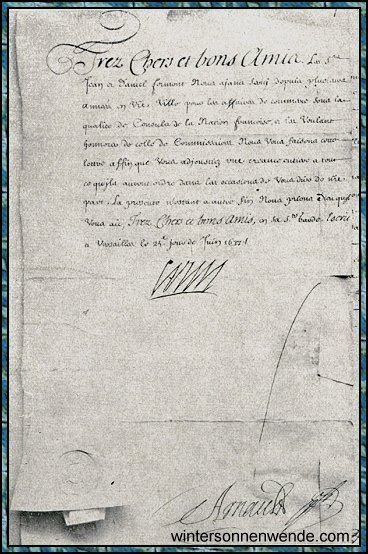 Trez Chers et bons Amis. Les Srs
Jean et Daniel formont Nous ayans servi depuis plus
en Vre Ville pour les affaires de commerce sous la
qualité de Consuls de la Nation françoise, et les Voulans
honnorer de celle de Commissaires Nous Vous faisons cette
lettre affin que Vous adjoustiez une creance entiere a tout
ce qu'ils auront ordre dans les occasions de Vous dire de Nre
part. La presente n'estant a autre fin Nous prions Dieu qu'il
Vous ait, Trez Chers et bons Amis, en sa Ste garde. Escrit
a Versailles le 25e jour de Juin
Louis
Arnauld
wintersonnenwende.com